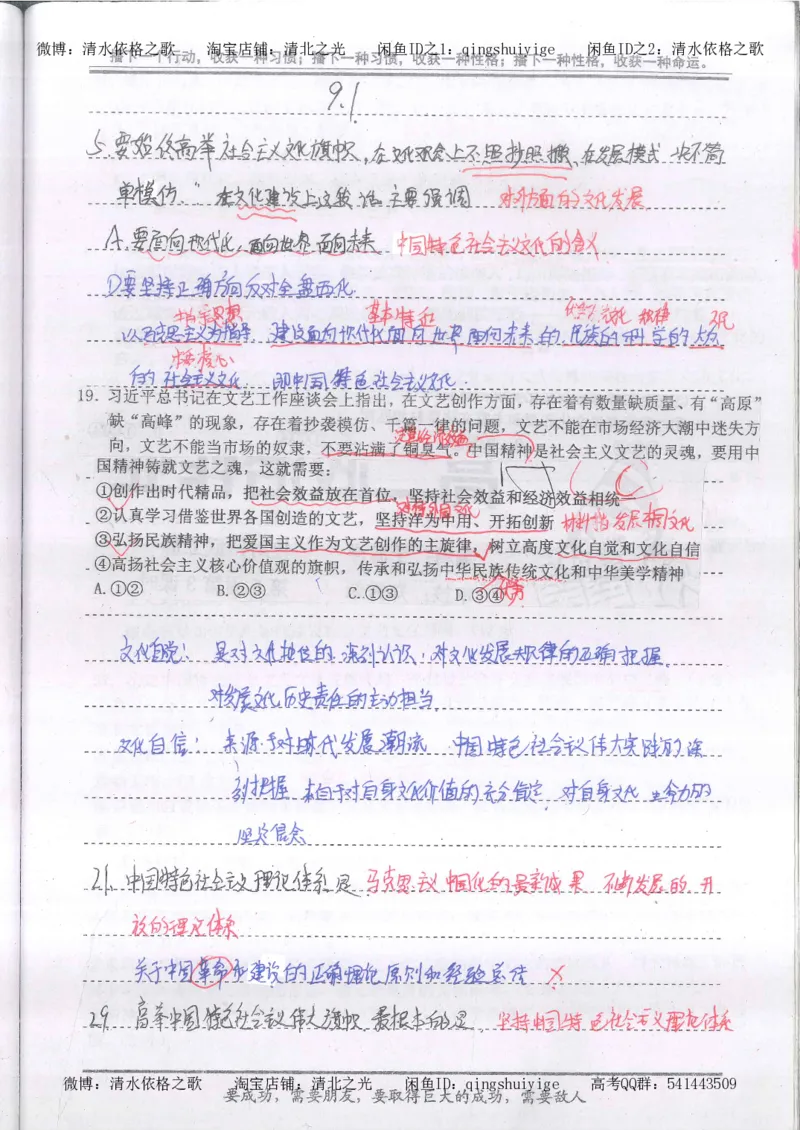 微博：清水依格之歌 淘宝店铺：清北之光 闲鱼ID之1：qingshuiyige 闲鱼ID之2：清水依格之歌
播下一个行动，收获一种习惯；播下一种习惯，收获一种性格；播下一种性格，收获一种命运。
9.1
5.要始终高举社会主义文化旗帜,在文化观念上不照抄照搬,在发展模式上不简
单模仿."在文化建设上这段话主要强调 对方面向的文化发展
A.要面向现代化,面向世界,面向未来 中国特色社会主义文化的含义
D要坚持正确方向反对全盘西化
指导思想 基本特征
以马克思主义为指导 建设面向现代化面向世界面向未来的,民族的科学的大众
核心
的社会主义文化 即中国特色社会主义文化.
19. 习近平总书记在文艺工作座谈会上指出，在文艺创作方面，存在着有数量缺质量、有“高原”
缺“高峰”的现象，存在着抄袭模仿、千篇一律的问题，文艺不能在市场经济大潮中迷失方
向，文艺不能当市场的奴隶，不要沾满了铜臭气。中国精神是社会主义文艺的灵魂，要用中
国精神铸就文艺之魂，这就需要：
①创作出时代精品，把社会效益放在首位，坚持社会效益和经济效益相统一
②认真学习借鉴世界各国创造的文艺，坚持洋为中用、开拓创新
③弘扬民族精神，把爱国主义作为文艺创作的主旋律，树立高度文化自觉和文化自信
④高扬社会主义核心价值观的旗帜，传承和弘扬中华民族传统文化和中华美学精神
优秀
A.①② B.②③ C.①③ D.③④
文化自觉: 是对文化地位的深刻认识,对文化发展规律的正确把握
对发展文化历史责任的主动担当
文化自信: 来源于对时代发展潮流 中国特色社会主义伟大实践的深
刻把握 来自于对自身文化价值的充分肯定,对自身文化生命力的
坚定信念
21.中国特色社会主义理论体系是马克思主义中国化的最新成果 不断发展的.开
放的理论体系
关于中国革命和建设的正确理论原则和经验总结 ×
29. 高举中国特色社会主义伟大旗帜 最根本的是 坚持中国特色社会主义理论体系
微博：清水依格之歌 淘宝店铺：清北之光 闲鱼ID：qingshuiyige 高考QQ群：541443509
要成功，需要朋友，要取得巨大的成功，需要敌人